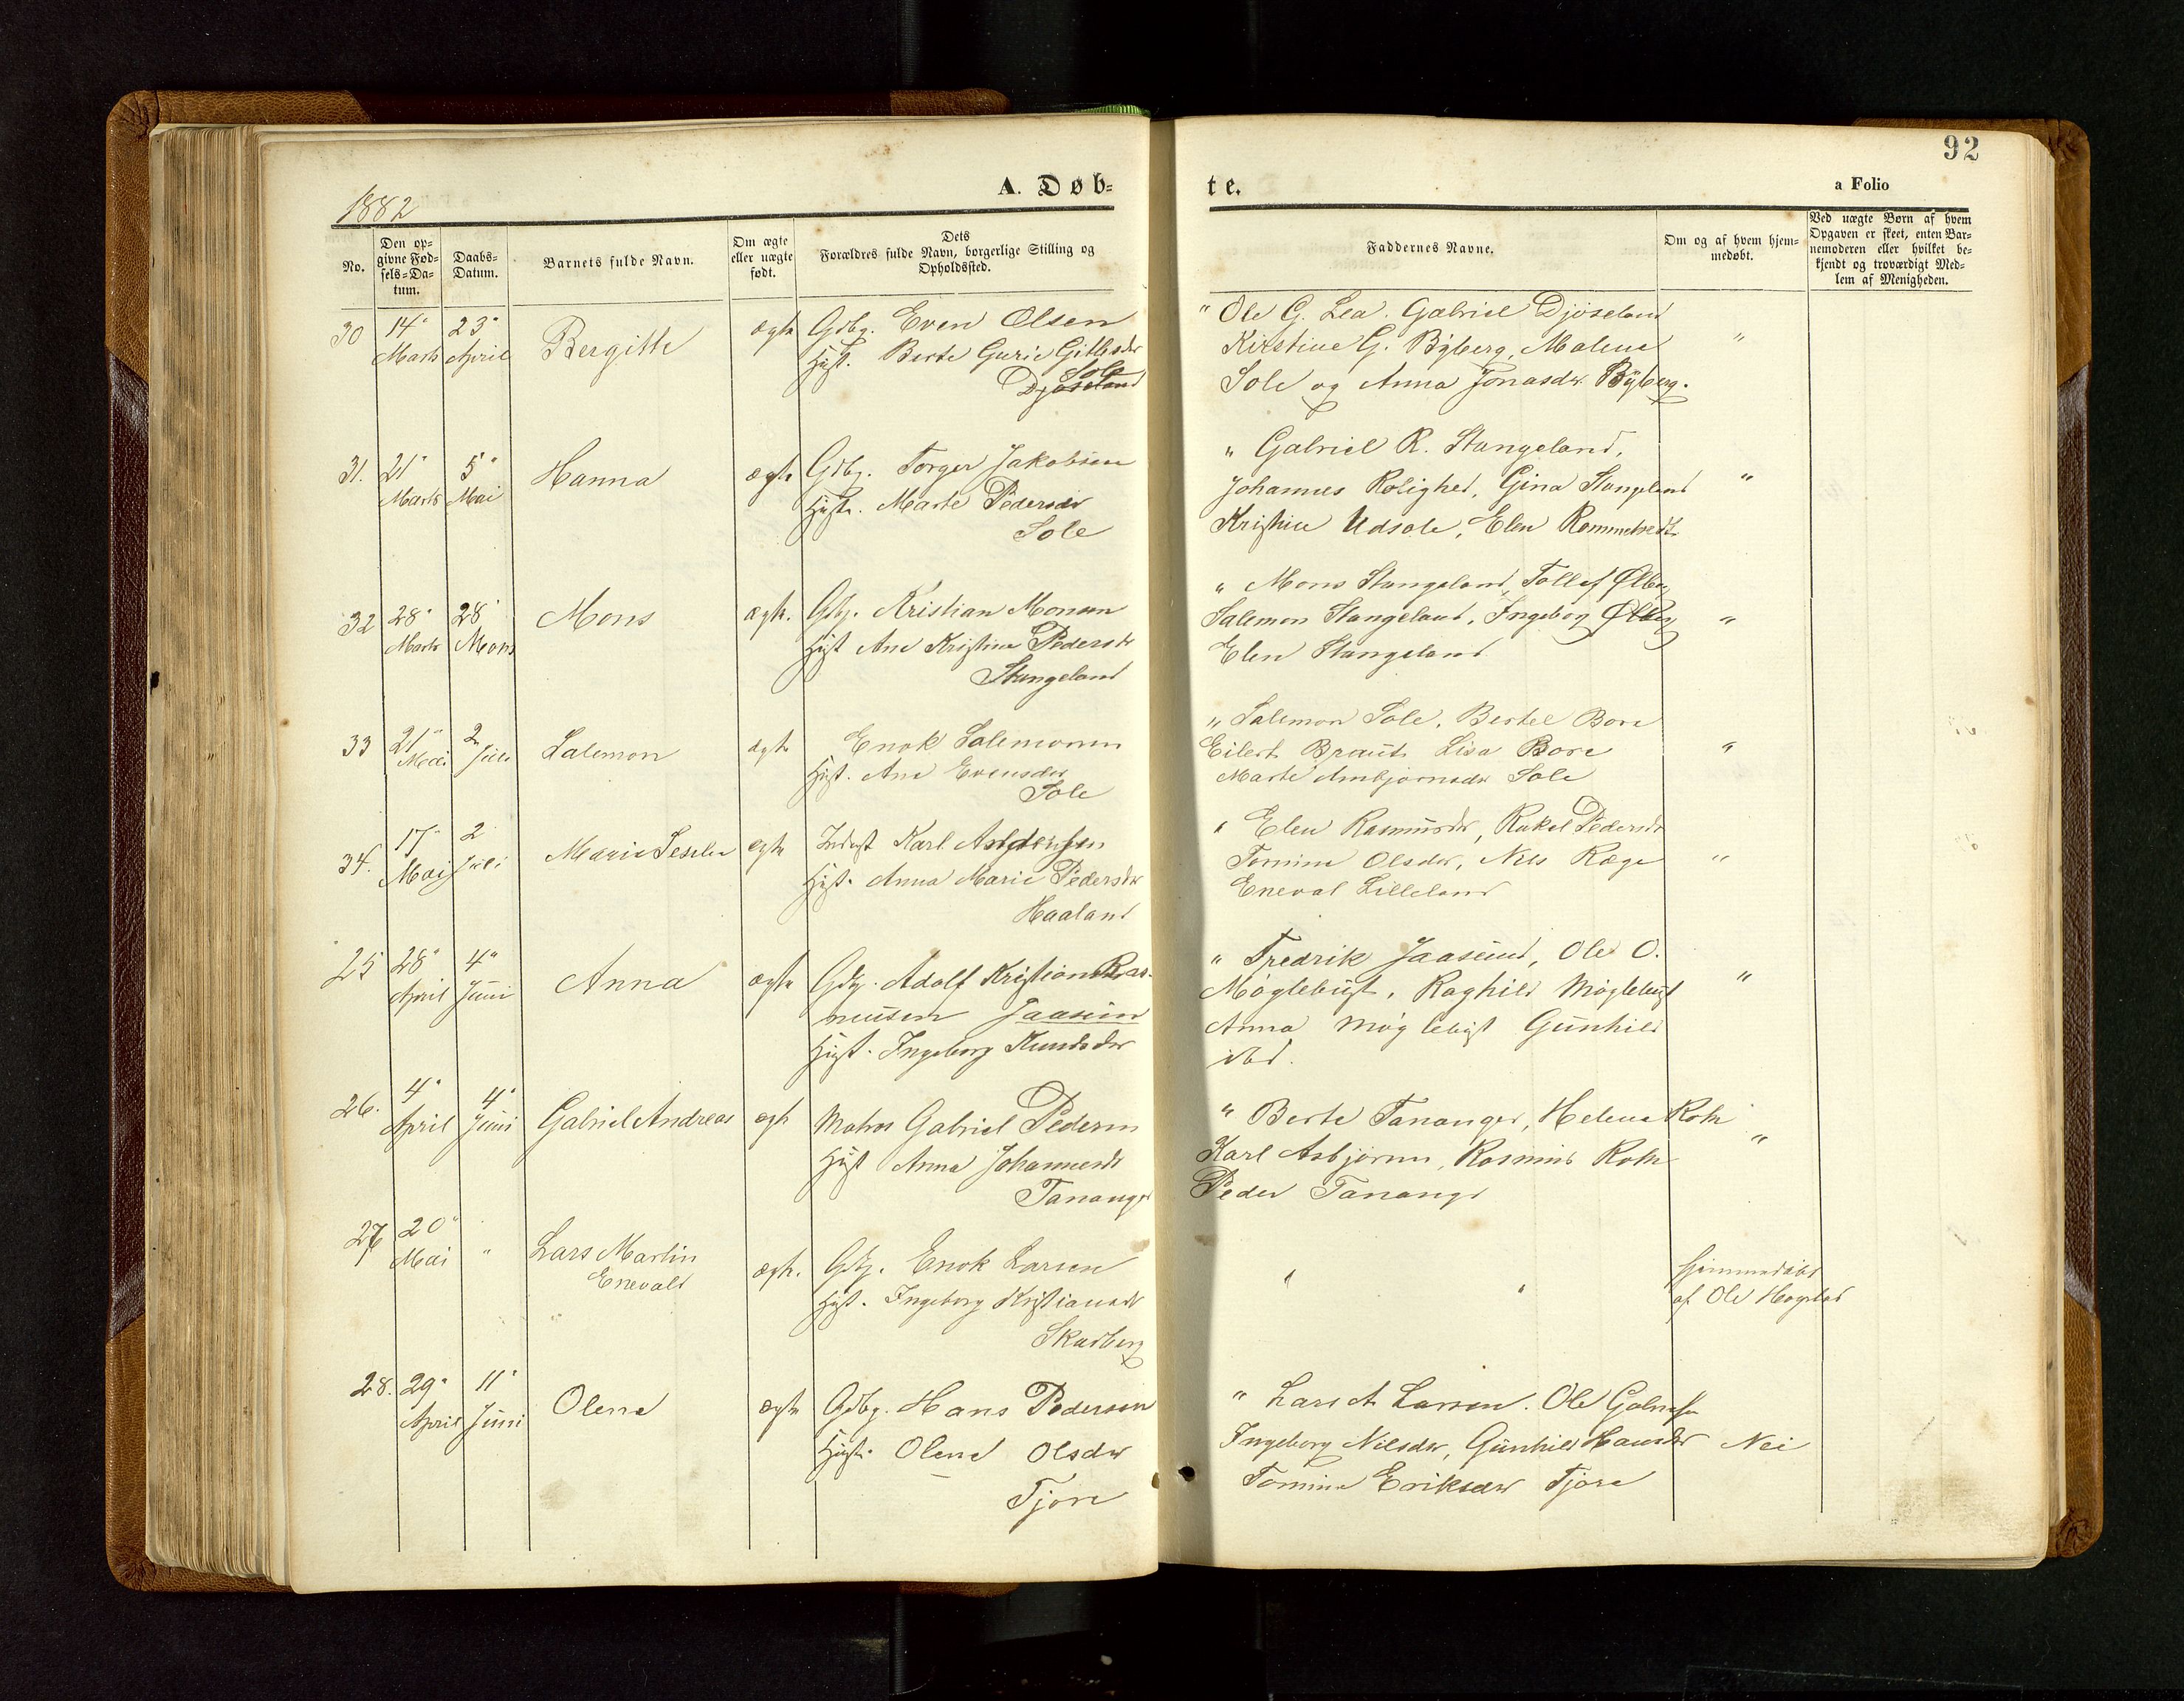 92
1882
A. Døb-
te.
a Folio
No.
Den op-
givne Fød-
sels-Da-
tum.
Daabs-
Datum.
Barnets fulde Navn.
Om ægte
eller uægte
født.
Dets
Forældres fulde Navn, borgerlige Stilling og
Opholdssted.
Faddernes Navne.
Om og af hvem hjem-
medøbt.
Ved uægte Børn af hvem
Opgaven er skeet, enten Bar-
nemoderen eller hvilket be-
kjendt og troværdigt Med-
lem af Menigheden.
30 14" 23" Bergitte ægte Gdbg. Even Olsen
Marts April Hust. Berte Gurie Gitlesdr
Sole
Djøseland
" Ole G. Lea. Gabriel Djøseland
Kirstine G. Byberg, Malene "
Sole og Anna Jonasdr. Byberg.
31. 21" 5" Hanna ægte Gdbg. Torger Jakobsen
Marts Mai Hustr. Marte Pedersdr
Sole
" Gabriel R. Stangeland,
Johannes Rolighed, Gina Stangeland "
Kristine Udsole, Elen Rommetvedt
32 28" 28" Mons ægte. Gdbg. Kristian Monsen
Marts Mons Hust Ane Kristine Pedersdr
Stangeland
" Mons Stangeland, Tollef Ølberg
Salemon Stangeland, Ingebog Ølberg "
Elen Stangeland
33 21" 2 Salemon ægte Enok Salemonsen
Mai Juli Hust. Ane Evensdr
Sole
" Salemon Sole, Bertel Bore
Eilert Braut Lisa Bore "
Marte Ambjørnsdr Sole
34. 17" 2 Marie ægte Karl
Mai Juli Hust. Anna Marie Pedersdr
Haaland
" Elen Rasmusdr, Rakel Pedersdr
Tomine Olsdr, Nils Ræge "
Eneval Lilleland
25 28" 4" Anna ægte Gdbg. Adolf Kristian Ras-
April Juni musen Jaasun
Hust. Ingeborg Knudsdr
" Fredrik Jaasund, Ole O.
Møglebust, Raghild Møglebust "
Anna Møglebust Gunhild
ibd.
26. 4" 4" Gabriel Andreas ægte Matros Gabriel Pedersen
April Juni Hust Anna Johannesdr
Tananger
" Berte Tananger, Helene Roth
Karl Asbjørnsen, Rasmus Roth "
Peder Tananger
27 20" " Lars Martin ægte. Gdbg. Enok Larsen
Mai Enevald Hust. Ingeborg Kristiansdr
Skadberg
" " Hjemmedøbt
af Ole Hogstad
28. 29" 11" Olene ægte Gdbg. Hans Pedersen
April Juni Hust. Olene Olsdr
Tjore
" Lars A Larsen. Ole
Ingeborg Nilsdr, Gunhild Hansdr Nei
Tomine Eriksdr Tjore